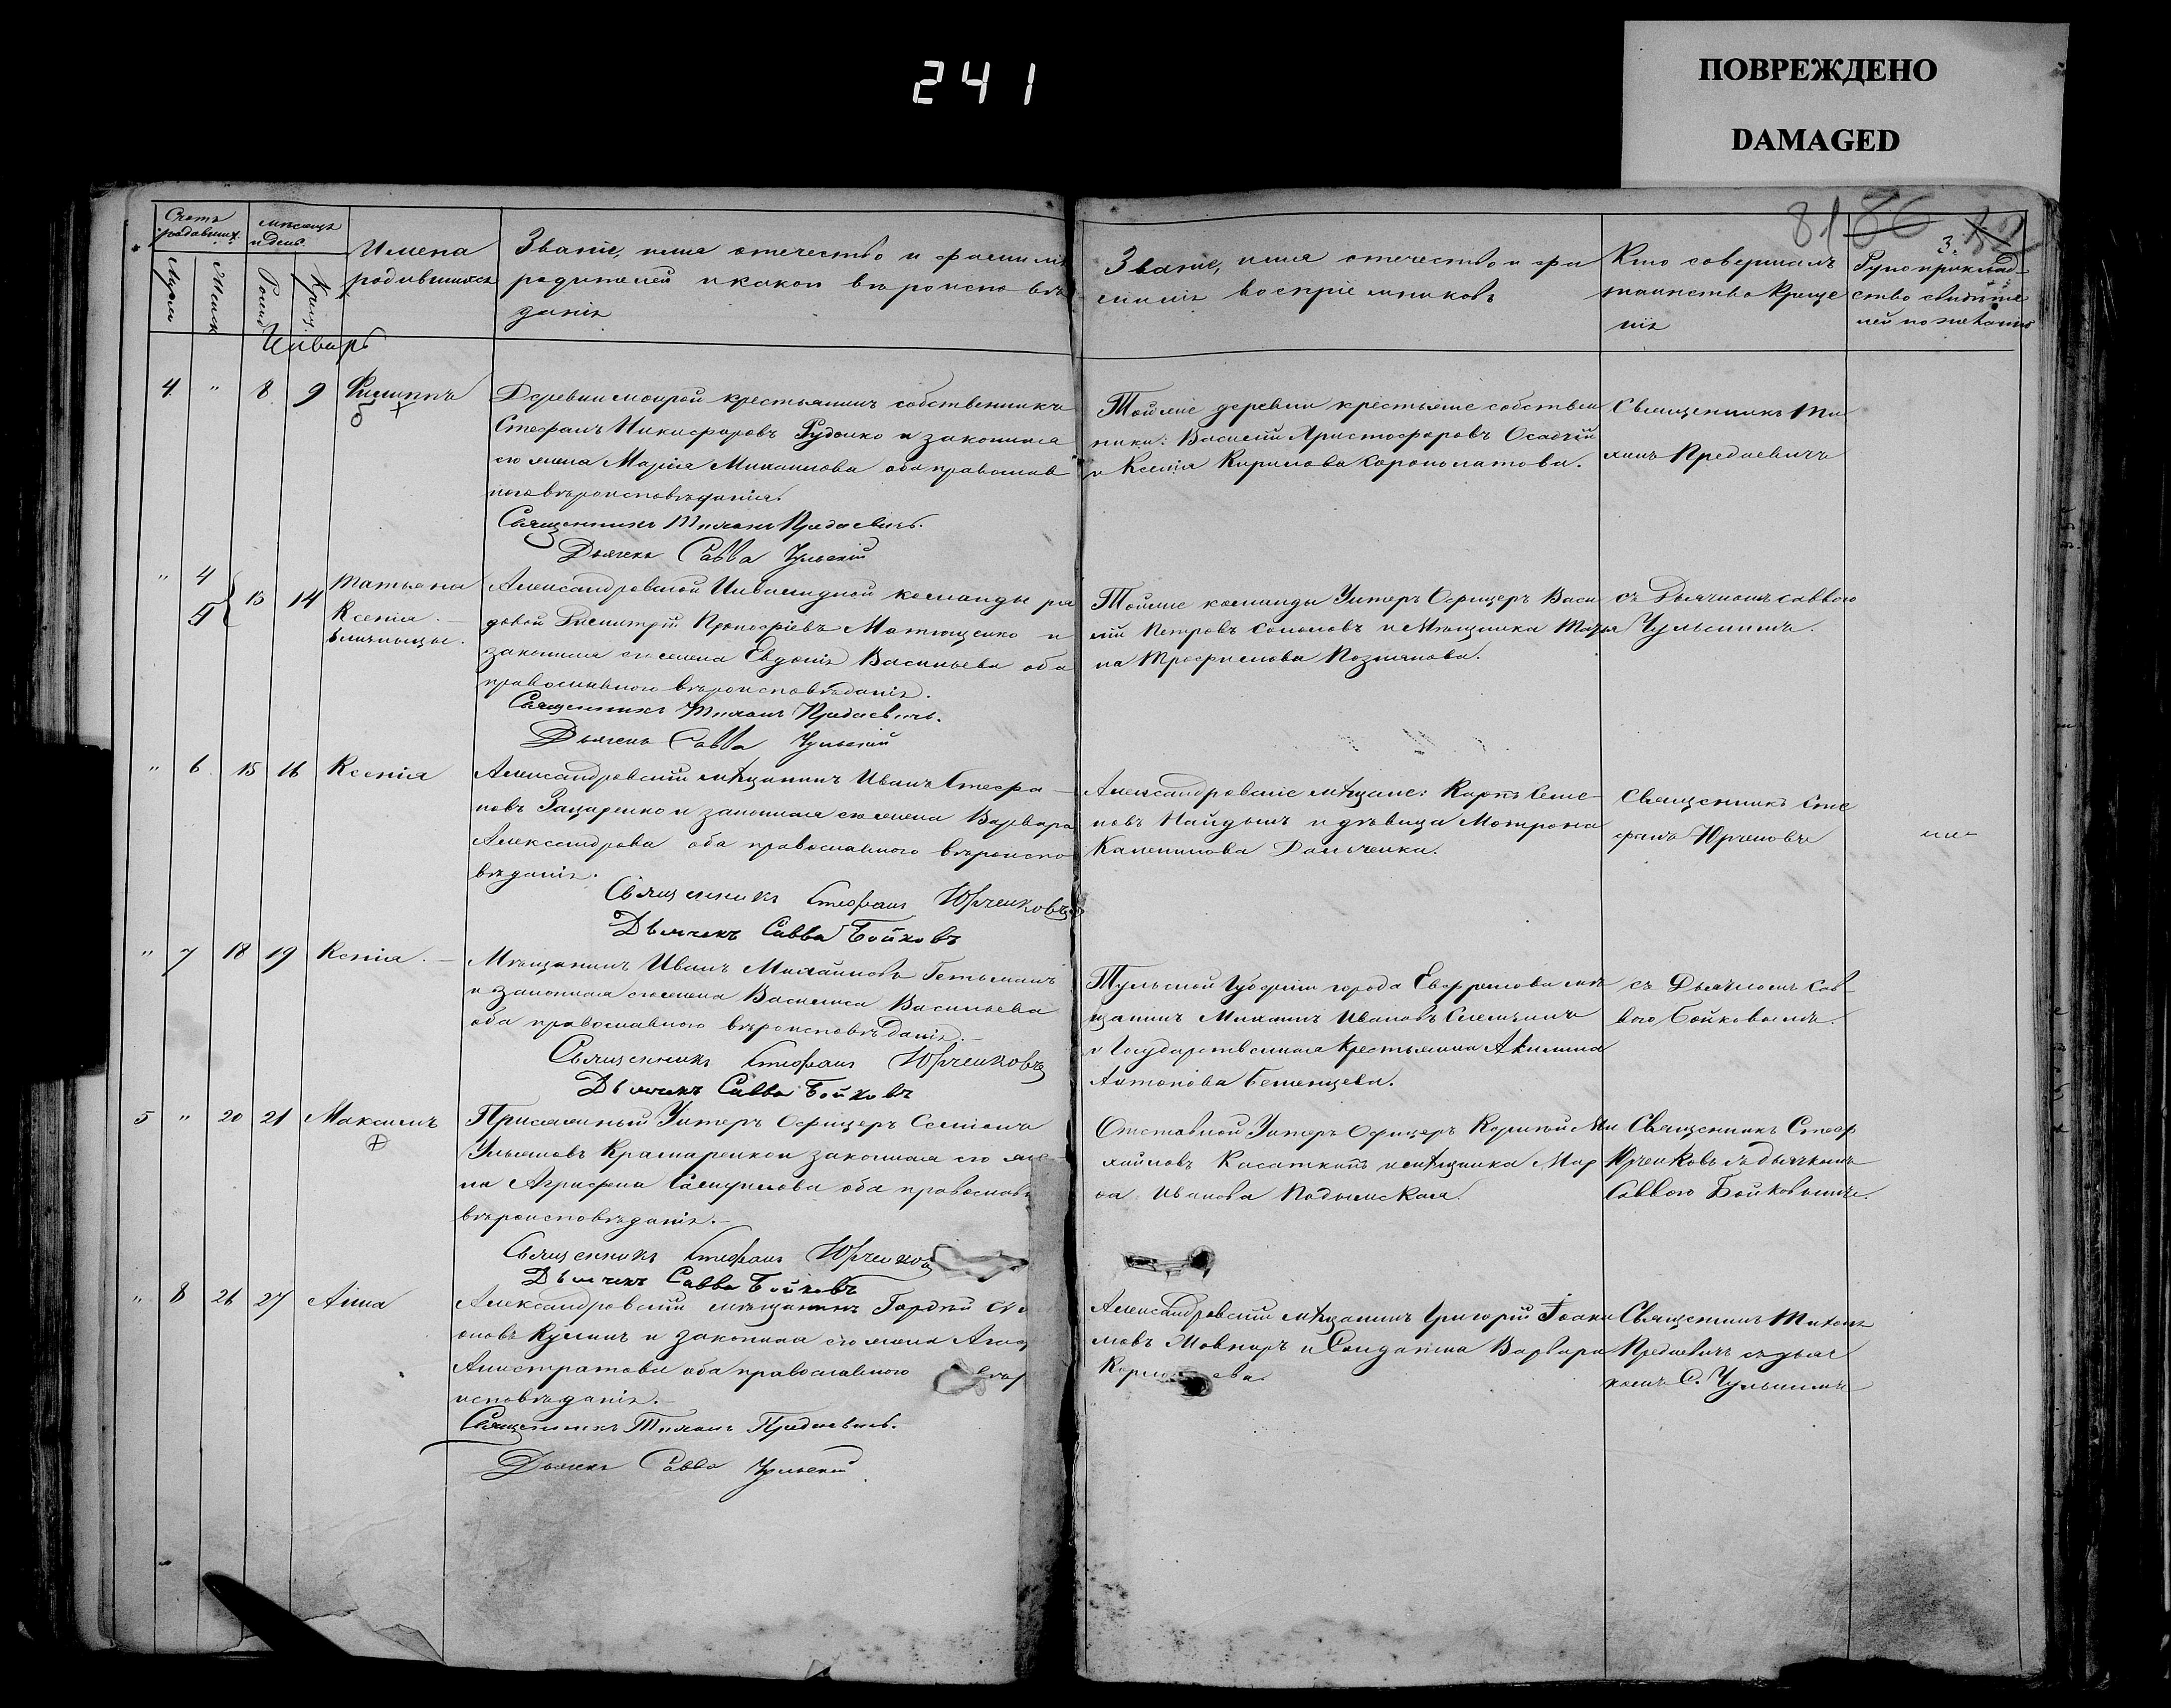 241
ПОВРЕЖДЕНО
DAMAGED
81 86 82
3.
Счетъ
родившихъ.
Мужеск
Женск
мѣсяцъ
и день.
Рожд
Крещ.
Имена
родившихся
Званіе, имя отечество и фамилія
родителей и какой вѣроисповѣ
данія
Званіе, имя отечество и фа
милія воспріемниковъ
Кто совершалъ
таинство Креще
нія
Рукоприклад-
ство свидѣте
лей по желанію
Январь
4. " 8 9 Филиппъ
Деревни мокрой крестьянинъ собственникъ
Стефанъ Никифоровъ Руденко и законная
его жена Марія Михаилова оба православ
наго вѣроисповѣданія.
Священникъ Тихонъ Предаевичъ.
Дьячекъ Савва Чульскій
Тойже деревни крестьяне собствен
ники: Василій Христофоровъ Осадчій
и Ксенія Кирилова Коропатова.
Священникъ Ти
хонъ Предаевичъ
" 4 5 13 14 Татьяна
Ксенія. -
близницы.
Александровской Инвалидной команды ря
довой Димитрій Прокофіевъ Матющенко и
законная его жена Евдокія Васильева оба
православнаго вѣроисповѣданія.
Священникъ Тихонъ Предаевичъ.
Дьячекъ Савва Чульскій
Тойже команды Унтеръ Офицеръ Васи
лій Петровъ Соколовъ и Мѣщанка Татья
на Трофимова Познякова.
съ Дьячкомъ Саввою
Чульскимъ.
" 6 15 16 Ксенія
Александровскій мѣщанинъ Иванъ Стефа-
новъ Захаренко и законная его жена Варвара
Александрова оба православнаго вѣроиспо
вѣданія.
Священникъ Стефанъ Юрченковъ
Дьячекъ Савва Бойковъ
Александровскіе мѣщане: Карпъ Семе-
новъ Найдышъ и дѣвица Мотрона
Калиникова Данченка.
Священникъ Сте
фанъ Юрченовъ
" 7 18 19 Ксенія. -
Мѣщанинъ Иванъ Михайловъ Гетьманъ
и законная его жена Василиса Васильева
оба православнаго вѣроисповѣданія. -
Священникъ Стефанъ Юрченковъ
Дьячекъ Савва Бойковъ
Тульской Губерніи города Ефремова мѣ
щанинъ Михаилъ Ивановъ
и Государственная крестьянка Акилина
Антонова
съ Дьячкомъ Сав-
вою Бойковымъ.
5 " 20 21 Максимъ
Присяжный Унтеръ Офицеръ Семіонъ
Ульяновъ Крамаренко и законная его же-
на Агрипена оба православн
вѣроисповѣданія. -
Священникъ Стефанъ Юрченков
Дьячекъ Савва Бойковъ
Отставной Унтеръ Офицеръ Корнѣй Ми
хайловъ Касаткинъ и мѣщанка Мар
фа Иванова Падымская.
Священникъ Стеф
Юрченковъ съ дьячкомъ
Саввою Бойковымъ.
" 8 26 27 Анна
Александровскій мѣщанинъ Гордѣй
оновъ и законная его жена Агаф
Амистратова оба православнаго вѣр
исповѣданія. -
Священникъ Тихонъ Предаевичъ.
Дьячекъ Савва Чульскій.
Александровскій мѣщанинъ Григорій Іоаки
мовъ Шовкаръ и Солдатка Варвара
ева.
Священникъ Тихонъ
Предаевичъ съ дьяч
комъ С. Чульскимъ